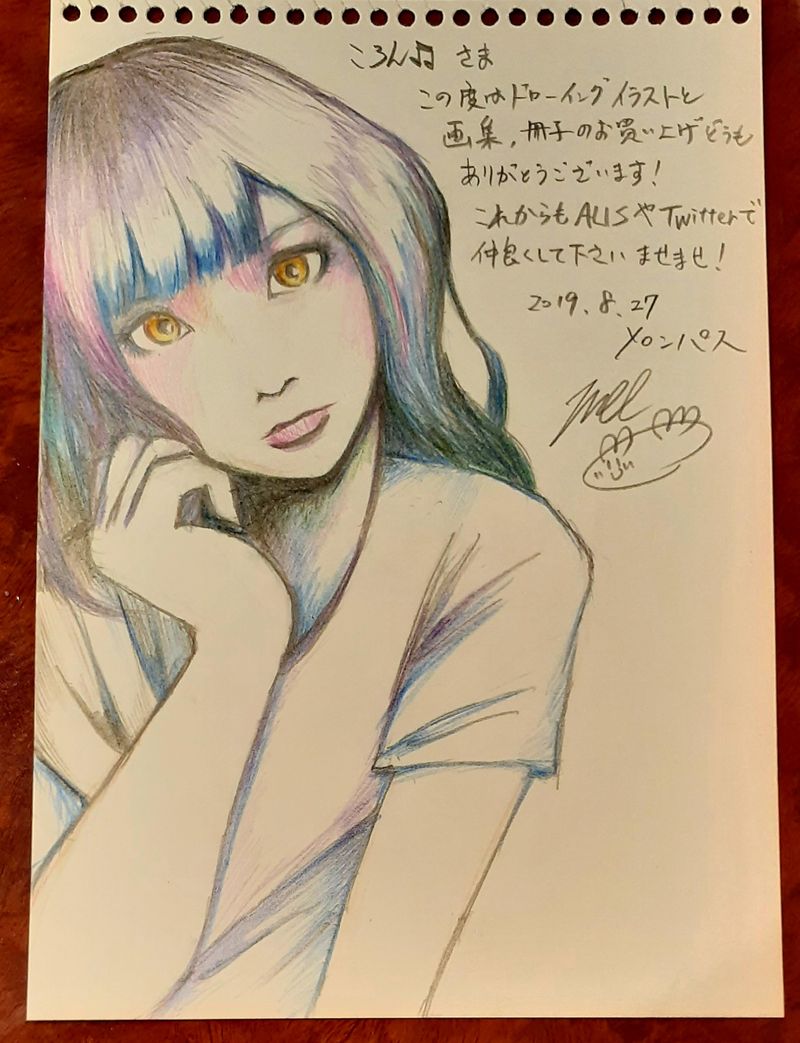 ころん♫ さま
この度はドローイングイラストと
画集，冊子のお買い上げどうも
ありがとうございます！
これからもALISやTwitterで
仲良くして下さいませませ！
2019.8.27
メロンパス
mel